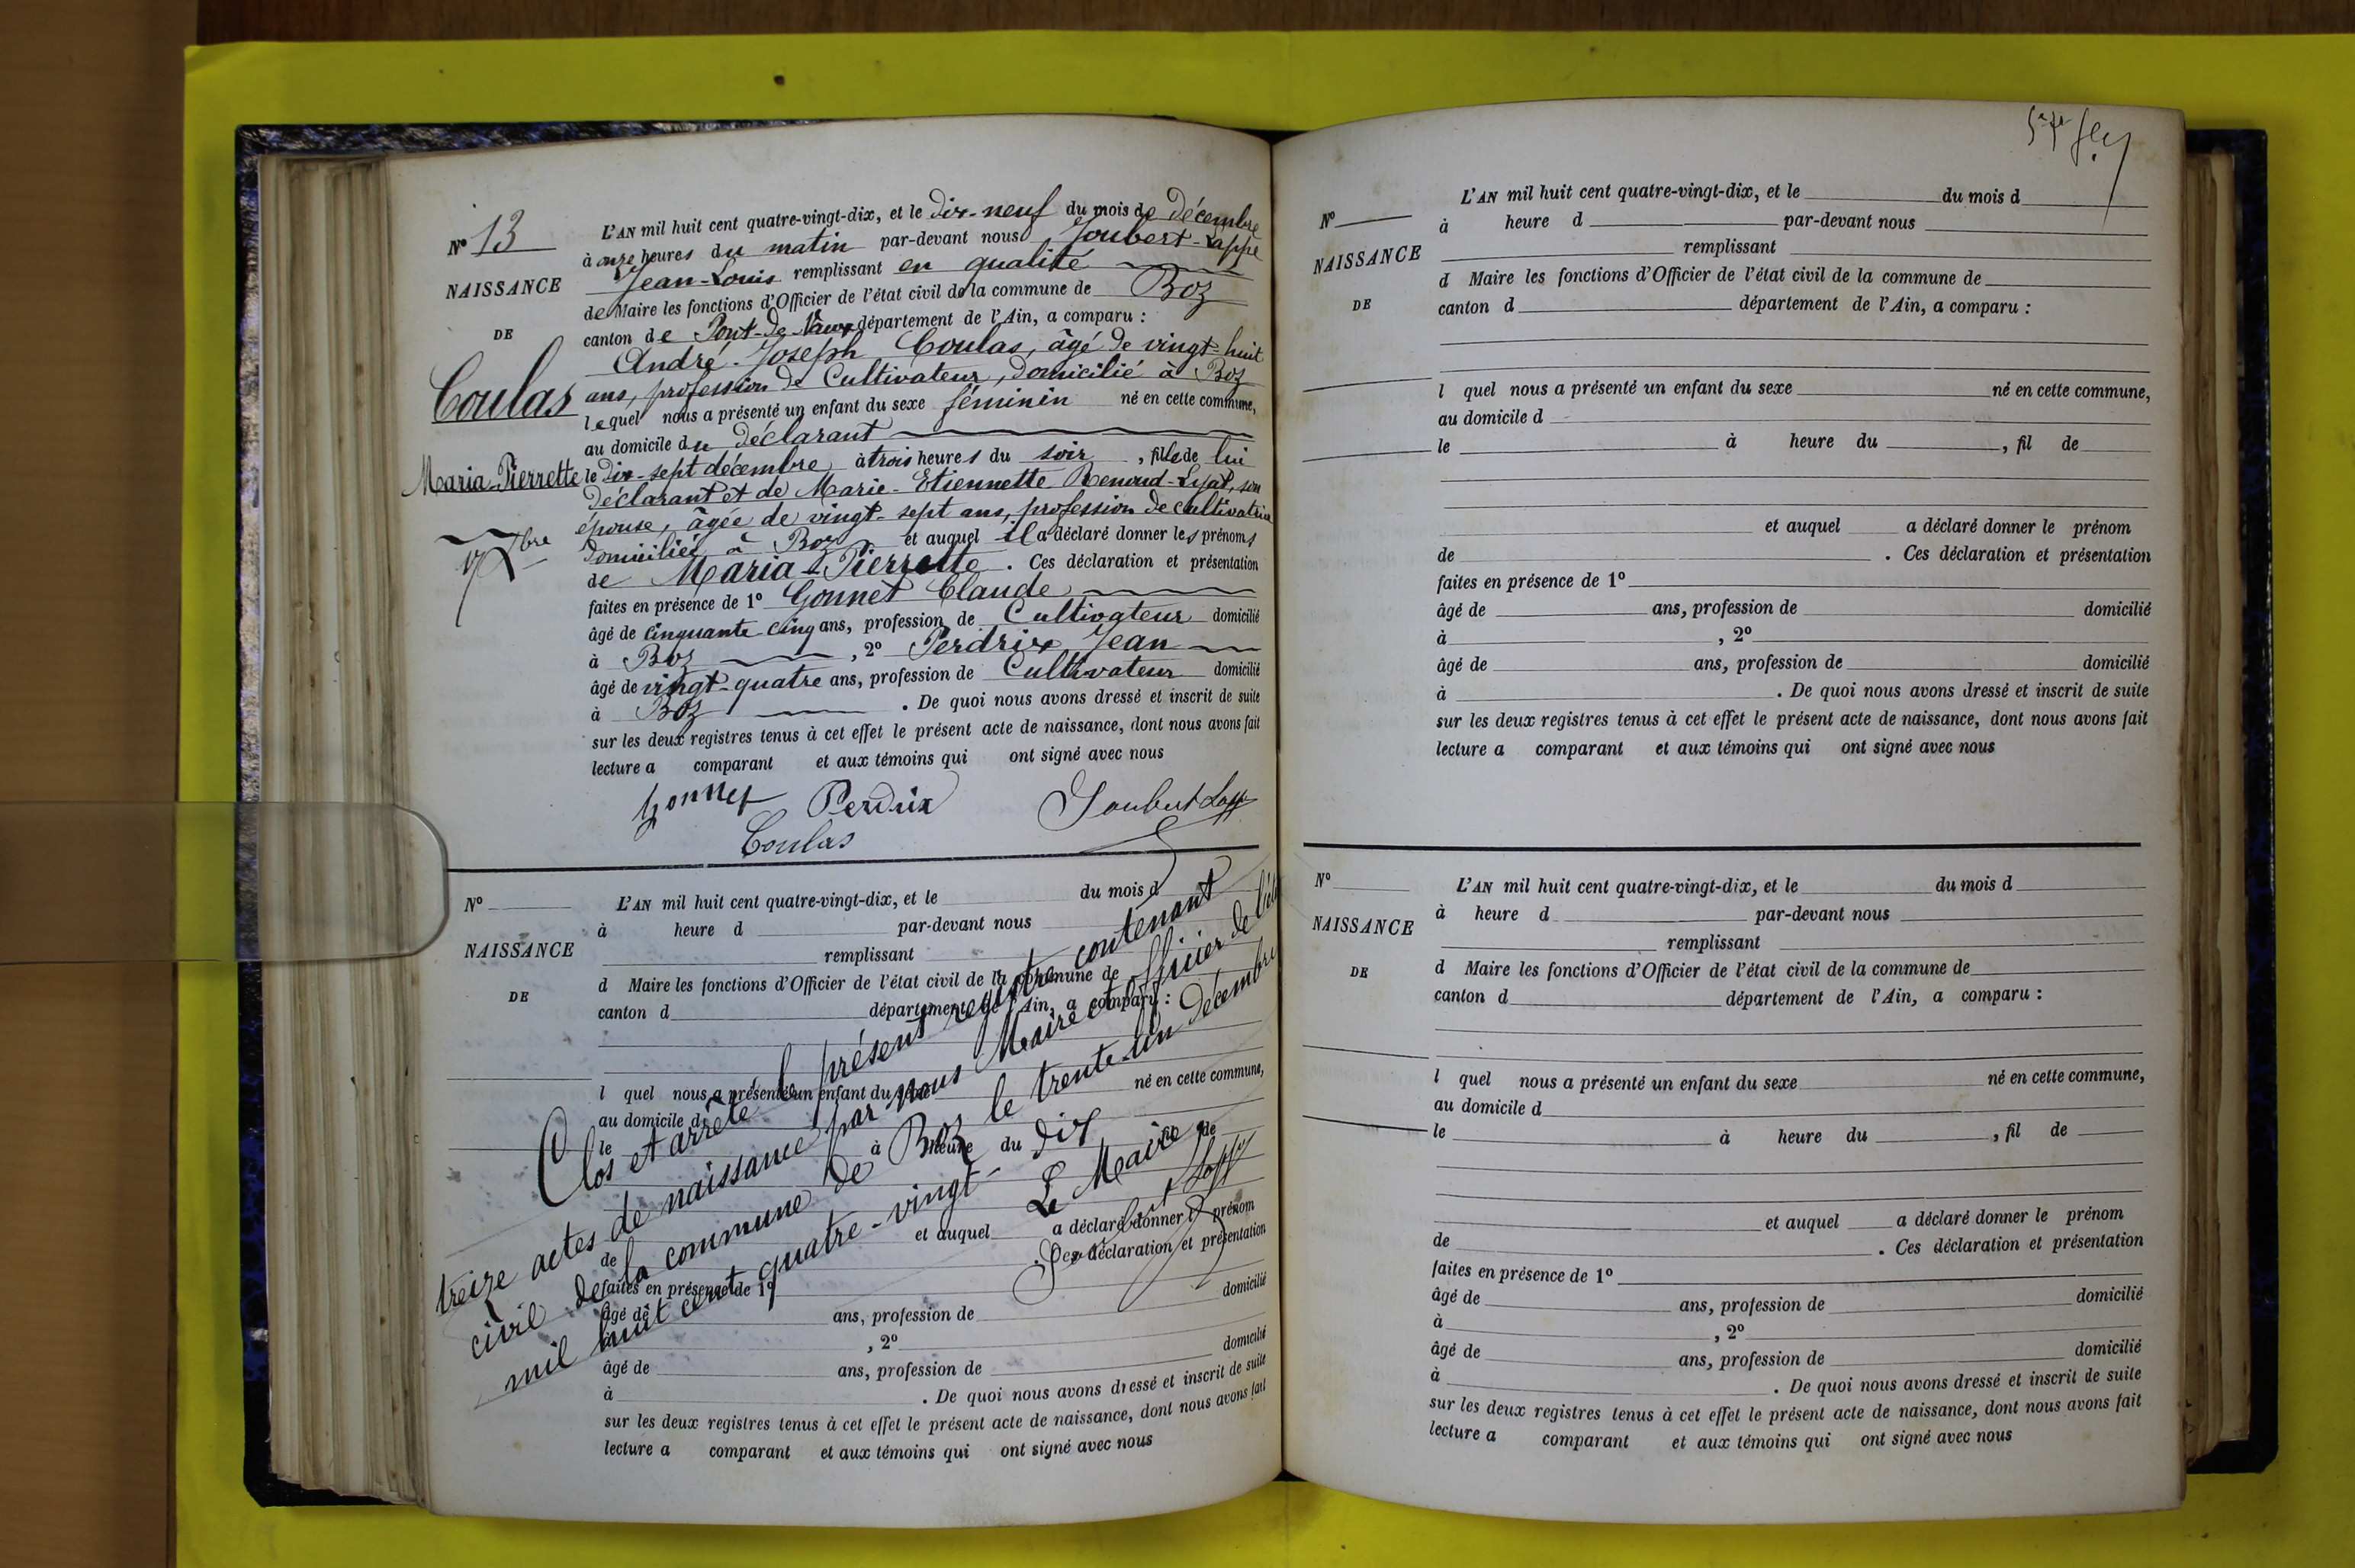 N° 13
NAISSANCE
DE
Coulas
Maria-Pierrette
17 Xbre
L'AN mil huit cent quatre-vingt-dix, et le dix-neuf du mois de décembre
à onze heures du matin par-devant nous Joubert-Lappe
Jean-Louis remplissant en qualité
de Maire les fonctions d'Officier de l'état civil de la commune de Boz
canton de Pont-de-Vaux département de l'Ain, a comparu :
André-Joseph Coulas, âgé de vingt-huit
ans, profession de Cultivateur, domicilié à Boz
lequel nous a présenté un enfant du sexe féminin né en cette commune,
au domicile du déclarant
le dix-sept décembre, à trois heures du soir, fille de lui
déclarant et de Marie-Etiennette Renoud-Lyat, son
épouse, âgée de vingt-sept ans, profession de cultivatrice
domiciliés à Boz et auquel il a déclaré donner les prénoms
de Maria-Pierrette. Ces déclaration et présentation
faites en présence de 1° Gonnet Claude
âgé de Cinquante cinq ans, profession de Cultivateur domicilié
à Boz, 2° Perdrix Jean
âgé de vingt-quatre ans, profession de Cultivateur domicilié
à Boz. De quoi nous avons dressé et inscrit de suite
sur les deux registres tenus à cet effet le présent acte de naissance, dont nous avons fait
lecture a comparant et aux témoins qui ont signé avec nous
Gonnet Perdrix Joubert Lapp
Coulas
N°
NAISSANCE
DE
L'AN mil huit cent quatre-vingt-dix, et le du mois d
à heure d par-devant nous
remplissant
d Maire les fonctions d'Officier de l'état civil de la commune de
canton d département de l'Ain, a comparu :
l quel nous a présenté un enfant du sexe né en cette commune,
au domicile d
le à heure du fil de
et auquel a déclaré donner le prénom
de . Ces déclaration et présentation
faites en présence de 1°
âgé de ans, profession de domicilié
à , 2°
âgé de ans, profession de domicilié
à . De quoi nous avons dressé et inscrit de suite
sur les deux registres tenus à cet effet le présent acte de naissance, dont nous avons fait
lecture a comparant et aux témoins qui ont signé avec nous
Clos et arrêté le présent registre contenant
treize actes de naissance par nous Maire et officier de l'état
civil de la commune de Boz le trente-un décembre
mil huit cent quatre-vingt-dix
Le Maire
Joubert Lapp
N°
NAISSANCE
DE
L'AN mil huit cent quatre-vingt-dix, et le du mois d
à heure d par-devant nous
remplissant
d Maire les fonctions d'Officier de l'état civil de la commune de
canton d département de l'Ain, a comparu :
l quel nous a présenté un enfant du sexe né en cette commune,
au domicile d
le à heure du , fil de
et auquel a déclaré donner le prénom
de . Ces déclaration et présentation
faites en présence de 1°
âgé de ans, profession de domicilié
à , 2°
âgé de ans, profession de domicilié
à . De quoi nous avons dressé et inscrit de suite
sur les deux registres tenus à cet effet le présent acte de naissance, dont nous avons fait
lecture a comparant et aux témoins qui ont signé avec nous
N°
NAISSANCE
DE
L'AN mil huit cent quatre-vingt-dix, et le du mois d
à heure d par-devant nous
remplissant
d Maire les fonctions d'Officier de l'état civil de la commune de
canton d département de l'Ain, a comparu :
l quel nous a présenté un enfant du sexe né en cette commune,
au domicile d
le à heure du , fil de
et auquel a déclaré donner le prénom
de . Ces déclaration et présentation
faites en présence de 1°
âgé de ans, profession de domicilié
à , 2°
âgé de ans, profession de domicilié
à . De quoi nous avons dressé et inscrit de suite
sur les deux registres tenus à cet effet le présent acte de naissance, dont nous avons fait
lecture a comparant et aux témoins qui ont signé avec nous